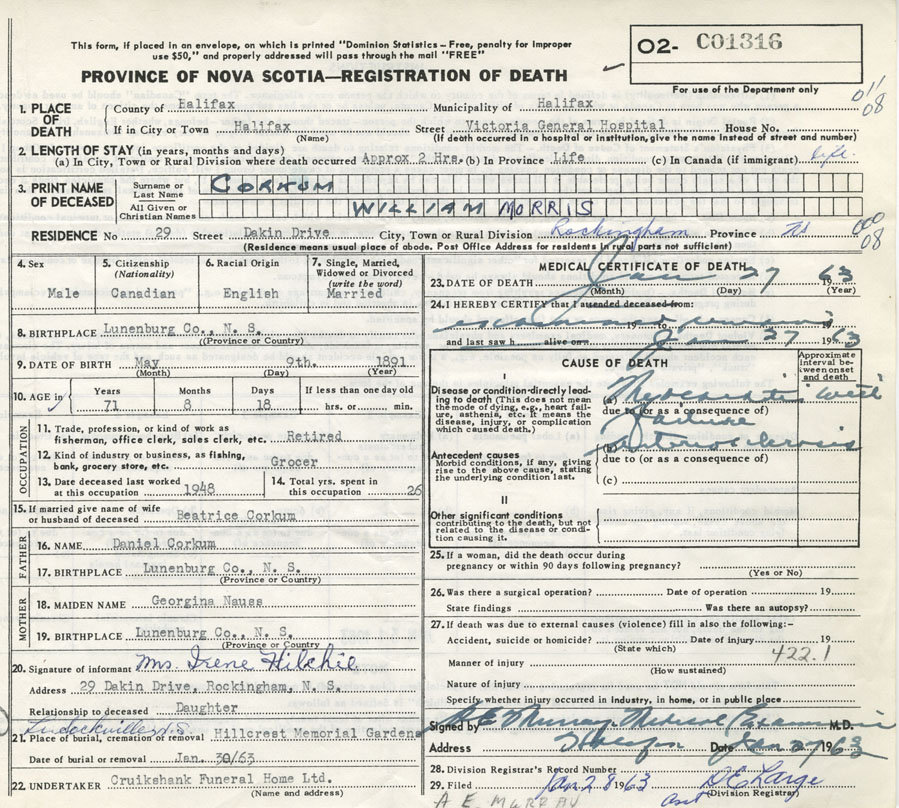 This form, if placed in an envelope, on which is printed "Dominion Statistics – Free, penalty for improper
use $50," and properly addressed will pass through the mail "FREE"
PROVINCE OF NOVA SCOTIA—REGISTRATION OF DEATH
O2- C01316
For use of the Department only
011
08
1. PLACE OF DEATH
County of Halifax Municipality of Halifax
If in City or Town Halifax (Name) Street Victoria General Hospital House No.
(If death occurred in a hospital or institution, give the name instead of street and number)
2. LENGTH OF STAY (in years, months and days)
(a) In City, Town or Rural Division where death occurred Approx 2 Hrs. (b) In Province Life (c) In Canada (if immigrant) life
3. PRINT NAME OF DECEASED
Surname or Last Name CORKUM
All Given or Christian Names WILLIAM MORRIS
RESIDENCE No 29 Street Dakin Drive City, Town or Rural Division Rockingham Province NS
000
08
(Residence means usual place of abode. Post Office Address for residents in rural parts not sufficient)
4. Sex
Male
5. Citizenship (Nationality)
Canadian
6. Racial Origin
English
7. Single, Married, Widowed or Divorced (write the word)
Married
8. BIRTHPLACE Lunenburg Co., N. S.
((Province or Country)
9. DATE OF BIRTH May 9th. 1891
(Month) (Day) (Year)
10. AGE in Years 71 Months 8 Days 18 If less than one day old hrs. or min.
OCCUPATION
11. Trade, profession, or kind of work as
fisherman, office clerk, sales clerk, etc. Retired
12. Kind of industry or business, as fishing,
bank, grocery store, etc. Grocer
13. Date deceased last worked at this occupation 1948
14. Total yrs. spent in this occupation 26
15. If married give name of wife
or husband of deceased Beatrice Corkum
FATHER
16. NAME Daniel Corkum
17. BIRTHPLACE Lunenburg Co., N. S.
(Province or Country)
MOTHER
18. MAIDEN NAME Georgina Nauss
19. BIRTHPLACE Lunenburg Co., N. S.
(Province or Country
20. Signature of informant Mrs. Irene Hilchie
Address 29 Dakin Drive, Rockingham, N. S.
Relationship to deceased Daughter
21. Place of burial, cremation or removal Hillcrest Memorial Gardens
Date of burial or removal Jan. 30/63
22. UNDERTAKER Cruikshank Funeral Home Ltd.
(Name and address)
MEDICAL CERTIFICATE OF DEATH
23. DATE OF DEATH Jan 27 1963
(Month) (Day) (Year)
24. I HEREBY CERTIFY that I attended deceased from:
examined remains 19 to 19
and last saw h alive on Jan 27 1963
CAUSE OF DEATH
Approximate interval between onset and death
I
Disease or condition directly leading to death (This does not mean
the mode of dying, e.g., heart failure, asthenia, etc. It means the
disease, injury, or complication which caused death.)
(a) Myocarditis with
due to (or as a consequence of)
failure
Antecedent causes
Morbid conditions, if any, giving rise to the above cause, stating
the underlying condition last.
(b) arteriosclerosis
due to (or as a consequence of)
(c)
II
Other significant conditions
contributing to the death, but not related to the disease or condition causing it.
25. If a woman, did the death occur during
pregnancy or within 90 days following pregnancy?
(Yes or No)
26. Was there a surgical operation? Date of operation 19
State findings Was there an autopsy?
27. If death was due to external causes (violence) fill in also the following:-
Accident, suicide or homicide? Date of injury 19
(State which)
422.1
Manner of injury
(How sustained)
Nature of injury
Specify whether injury occurred in industry, in home, or in public place
Signed by A E Murray Medical Examiner M.D.
Address Halifax Date Jan 27 1963
28. Division Registrar's Record Number
29. Filed Jan 28 1963 D E Large
(Division Registrar)
A E. MURRAY